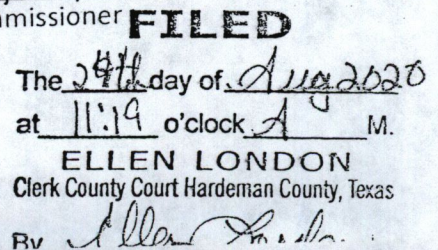 mmissioner
FILED
The 24th day of Aug 2020
at 11:19 o'clock A M.
ELLEN LONDON
Clerk County Court Hardeman County, Texas
By Ellen London